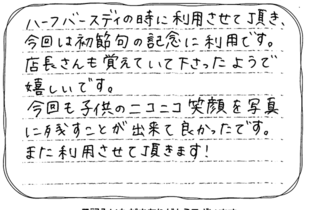 ハーフバースディの時に利用させて頂き、
今回は初節句の記念に利用です。
店長さんも覚えていて下さったようで
嬉しいです。
今回も子供のニコニコ笑顔を写真
に残すことが出来て良かったです。
また利用させて頂きます!